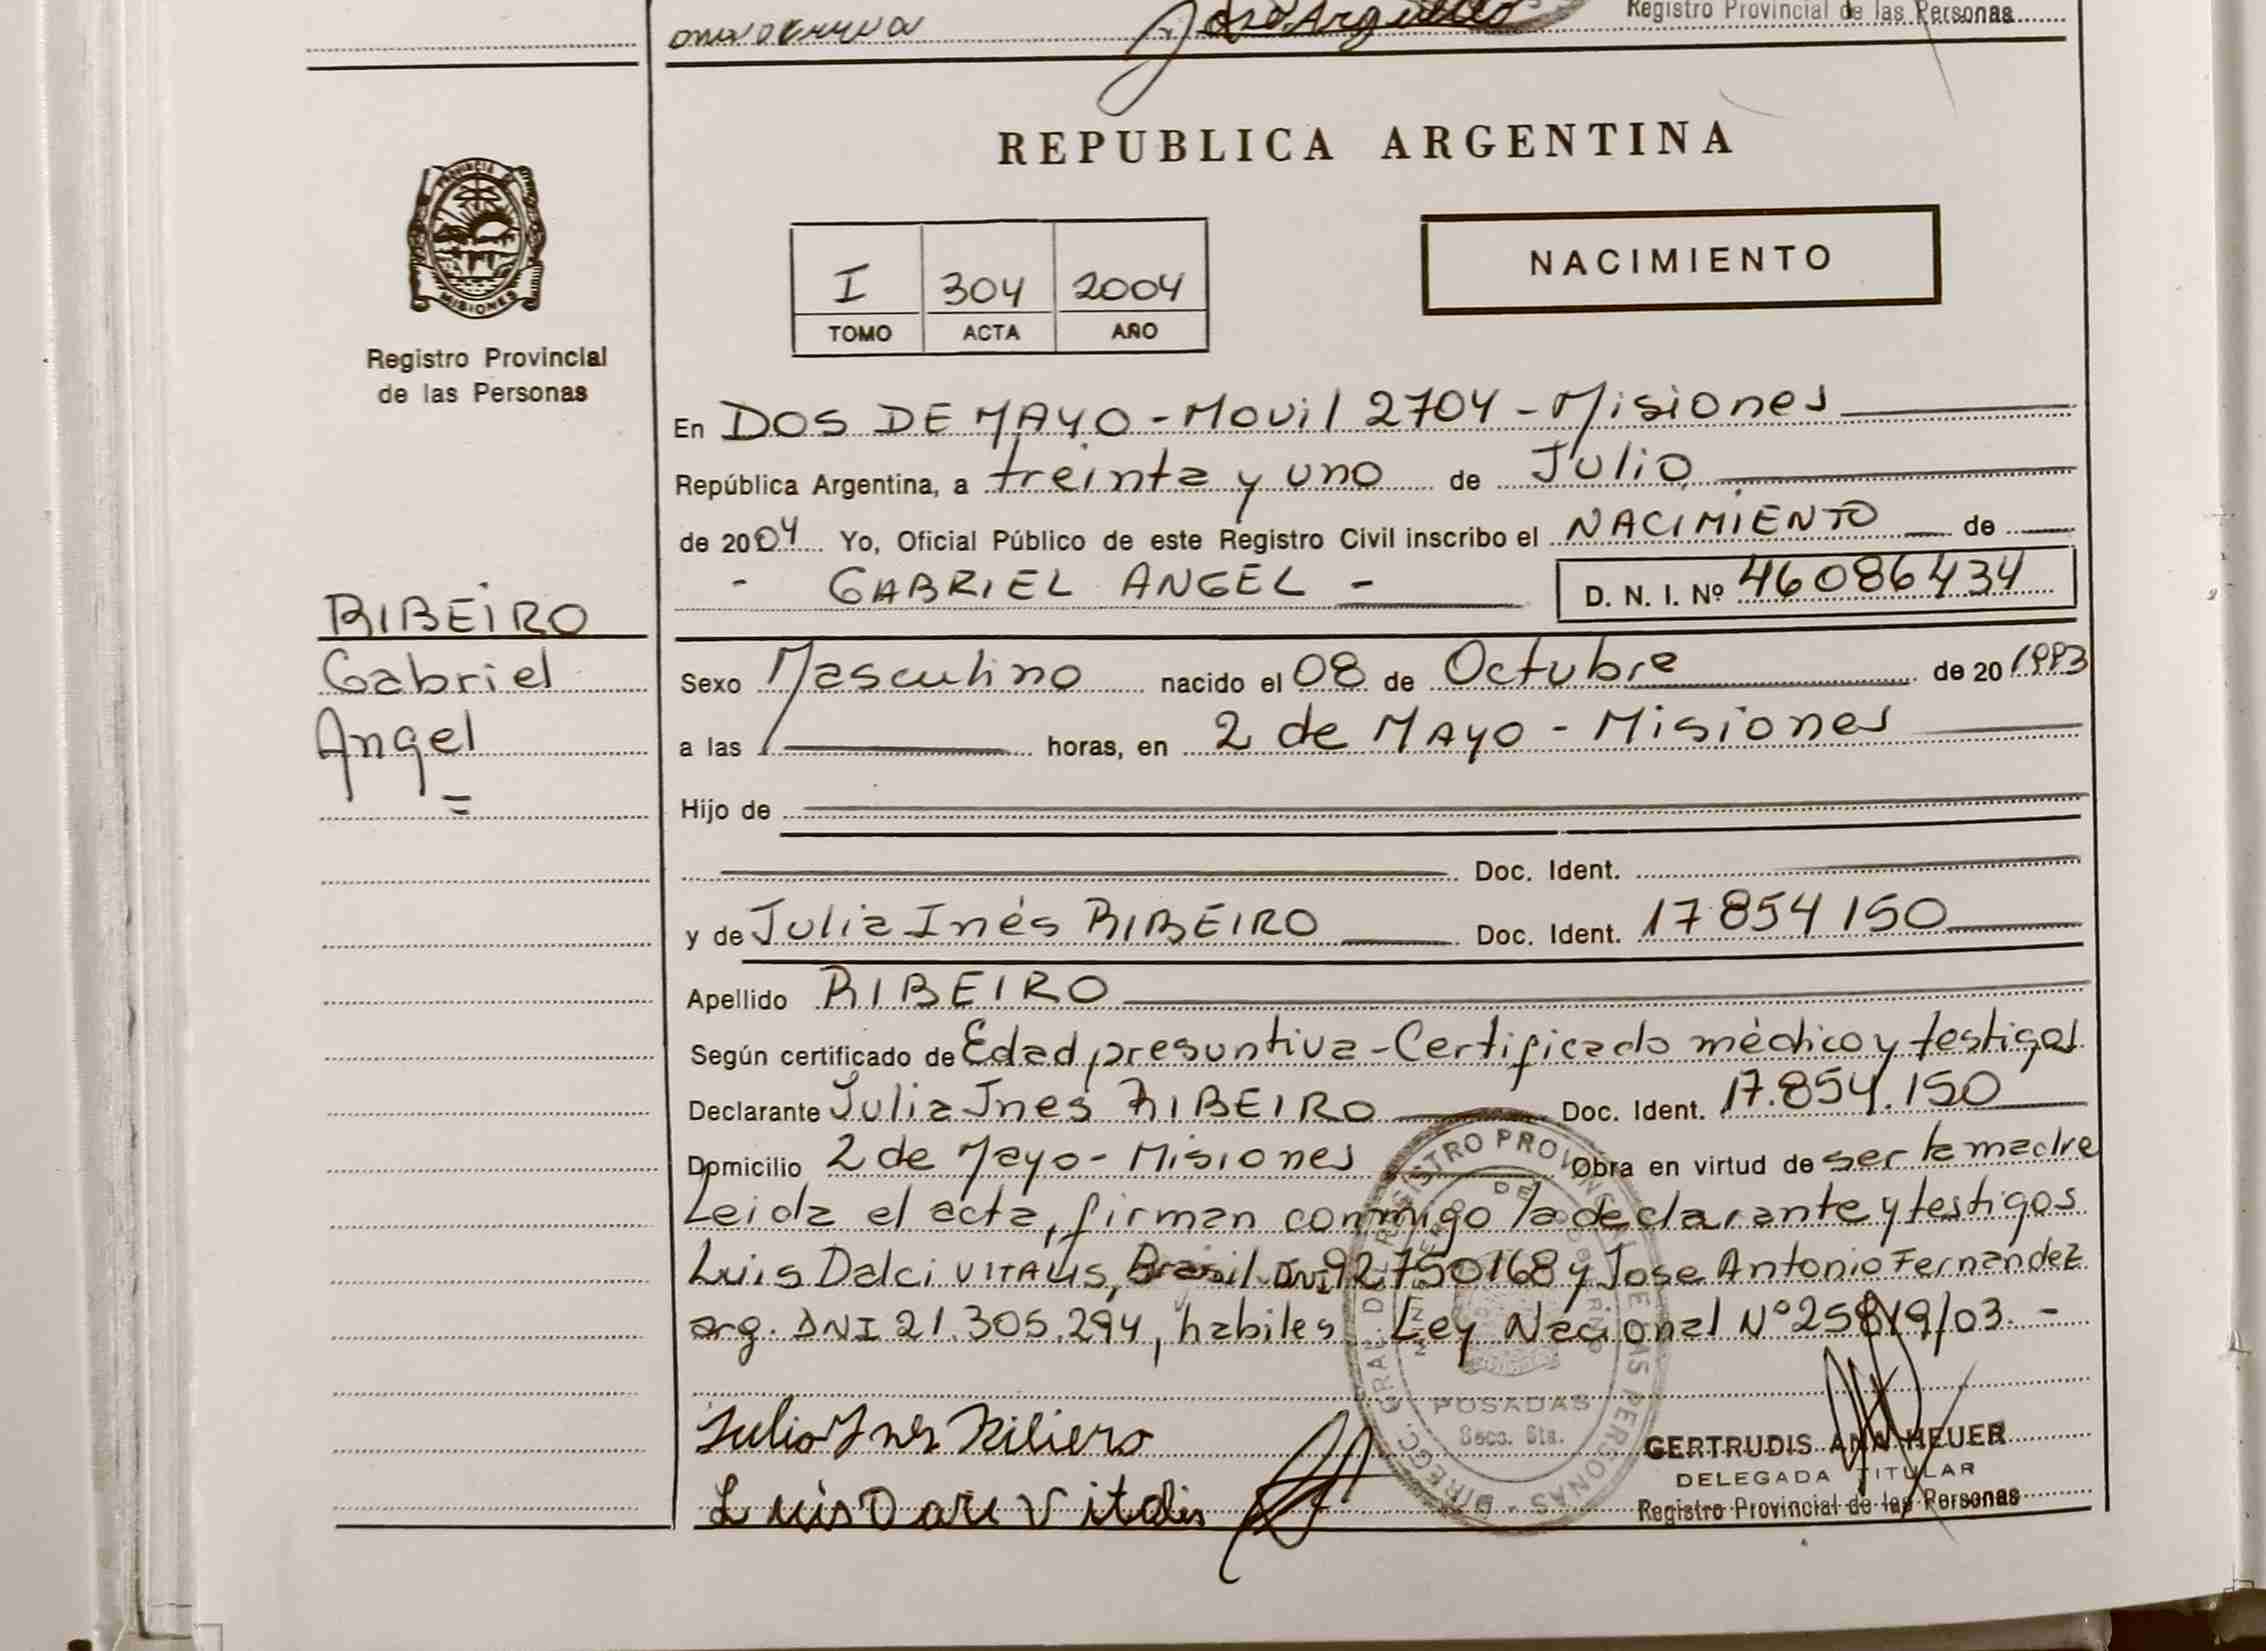 José Arguello
Registro Provincial de las Personas
REPUBLICA ARGENTINA
PROVINCIA DE
MISIONES
Registro Provincial
de las Personas
I 304 2004
TOMO ACTA AÑO
NACIMIENTO
En DOS DE MAYO - Movil 2704 - Misiones
República Argentina, a treinta y uno de Julio
de 2004 Yo, Oficial Público de este Registro Civil inscribo el NACIMIENTO de
- GABRIEL ANGEL -
D. N. I. Nº 46086434
RIBEIRO
Gabriel
Angel
=
Sexo Masculino nacido el 08 de Octubre de 20 1993
a las horas, en 2 de MAYO - Misiones
Hijo de
Doc. Ident.
y de Julia Inés RIBEIRO Doc. Ident. 17 854 150
Apellido RIBEIRO
Según certificado de Edad presuntiva - Certificado médico y testigos
Declarante Julia Ines RIBEIRO Doc. Ident. 17.854.150
Domicilio 2 de Mayo - Misiones Obra en virtud de ser la madre
Leida el acta, firman conmigo la declarante y testigos
Luis Dalci VITALIS, Brasil DNI 92750168 y Jose Antonio Fernandez
arg. DNI 21.305.294, habiles Ley Nacional Nº 25819/03. -
DIRECC. GRAL. DEL REGISTRO PROVINCIAL DE LAS PERSONAS
MINISTERIO DE GOBIERNO
POSADAS
Secc. Sta.
Julia Ines Ribiero
Luis Dalci Vitalis
GERTRUDIS ANA HEUER
DELEGADA TITULAR
Registro Provincial de las Personas